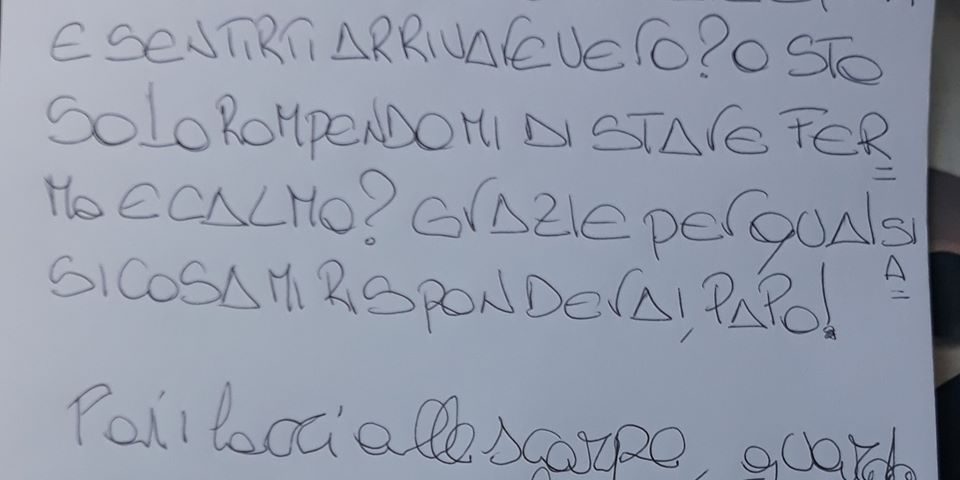 E SENTIRTI ARRIVARE VERO? O STO
SOLO ROMPENDOMI DI STARE FER=
MO E CALMO? GRAZIE PER QUALSI
A=
SI COSA MI RISPONDERAI, PAPO!
Fai i lacci alle scarpe,